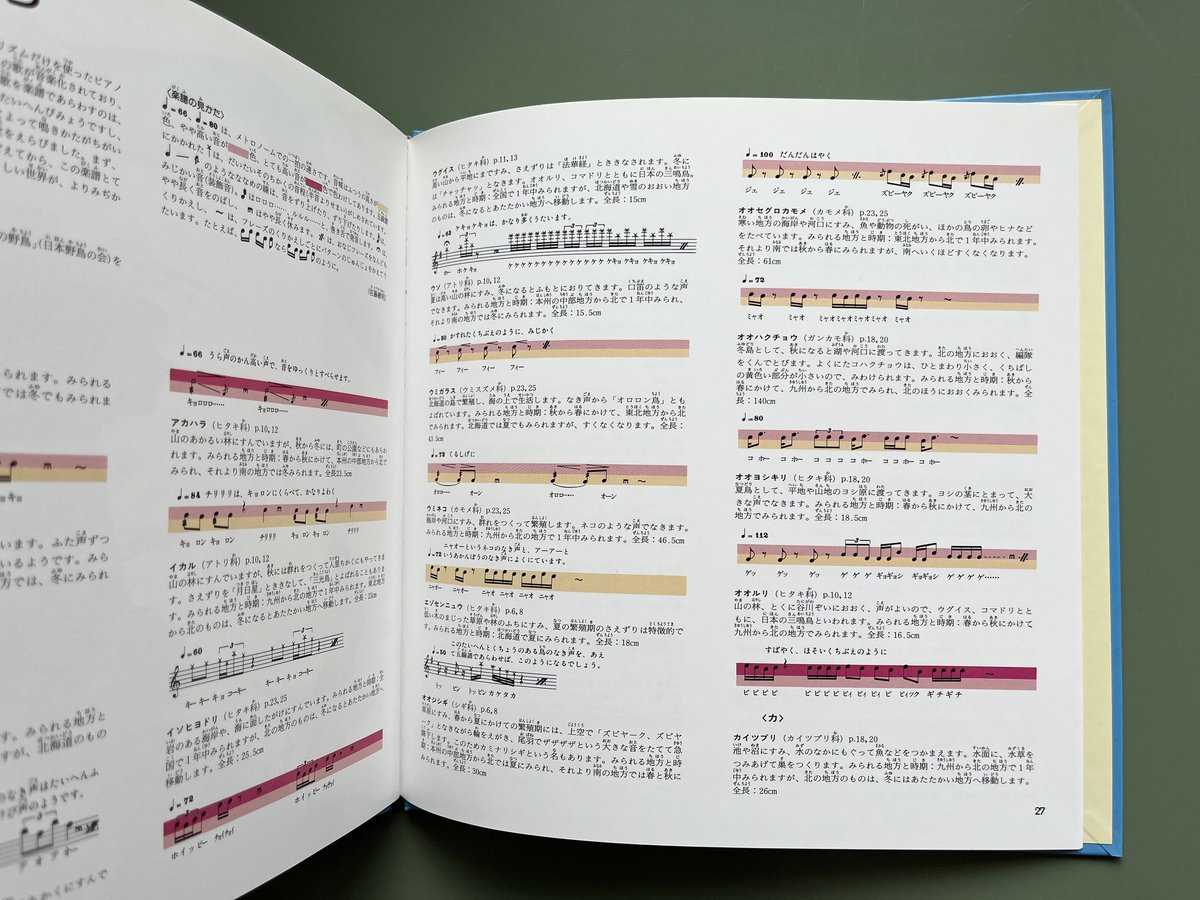 リズムだけを使ったピアノ
の歌が音楽化されており、
歌を楽譜であらわすのは、
たいへんびみょうですし、
よって鳴きかたがちがい
をえらびました。まず、
この楽譜と
しい世界が、よりみぢか
の野鳥」(日本野鳥の会)を
られます。みられる
では冬でもみられま
キョ
います。ふた声ずつ
いるようです。みら
方では、冬にみられ
す。みられる地方と
すが、北海道のもの
のなき声はたいへんふ
び声のようです。
〈楽譜の見かた〉
♩=66、♩=80は、メトロノームでの
たいます。たとえば、
のように。
(佐藤聰明)
♩=66 うら声のかん高い声で、音をゆっくりとすべらせます。
キョロロロ…… キョロロロ……
アカハラ(ヒタキ科)p.10,12
山のあかるい林にすんでいますが、秋から冬には、町の公園などにもあらわ
れます。みられる地方と時期:春から秋にかけて、本州の中部地方から北でみ
られ、それより南の地方では冬みられます。全長23.5cm
♩=84 チリリリは、キョロンにくらべて、かなりよわく
キョ ロン キョ ロン チリリリ キョロン キョロン チリリリ
イカル(アトリ科)p.10,12
山の林にすんでいますが、秋には群れをつくって人里ちかくにもやってきま
す。さえずりを「月日星」とききなして、「三光鳥」とよばれることもありま
す。みられる地方と時期:九州から北の地方で1年中みられます。東北地方
から北のものは、冬になるとあたたかい地方へ移動します。全長:23cm
♩=60
キーキーキョコーキー キーキーキョコーキー
イソヒヨドリ(ヒタキ科)p.23,25
岩のある海岸や、海に面したがけにすんでいます。みられる地方と時期:全
国で1年中みられますが、北の地方のものは、冬になるとあたたかい地方へ
移動します。全長:25.5cm
♩=72
ホイッピー チョイチョイ ホイッピー チョイチョイ
ウグイス(ヒタキ科)p.11,13
高い山から平地にまですみ、さえずりは「法華経」とききなされます。冬に
は「チャッチャッ」となきます。オオルリ、コマドリとともに日本の三鳴鳥。
みられる地方と時期:全国で1年中みられますが、北海道や雪のおおい地方
のものは、冬になるとあたたかい地方へ移動します。全長:15cm
♩=69 ケキョケキョは、かなり多くうたいます。
ホー ホケキョ ケケケケケケケケケケケケ ケキョ ケキョ ケキョ ケキョ
ウソ(アトリ科)p.10,12
夏は高い山の林にすみ、冬になるとふもとにおりてきます。口笛のような声
でなきます。みられる地方と時期:本州の中部地方から北で1年中みられ、
それより南の地方では冬にみられます。全長:15.5cm
♩=50 かすれたくちぶえのように、みじかく
フィー フィー フィー フィー
ウミガラス(ウミスズメ科)p.23,25
北海道の島で繁殖し、海の上で生活します。なき声から「オロロン鳥」とも
よばれています。みられる地方と時期:秋から春にかけて、東北地方から北
でみられます。北海道では夏でもみられますが、すくなくなります。全長:
43.5cm
♩=72 くるしげに
オロロ… オーン オロロ… オーン
ウミネコ(カモメ科)p.23,25
海岸や河口にすみ、群れをつくって繁殖します。ネコのような声でなきます。
みられる地方と時期:全国で1年中みられます。全長:46.5cm
ニャオーというネコのなき声と、アーアーと
♩=72 いうあかんぼうのなき声によくにています。
ニャオー ニャオー ニャオ ニャオ ニャオ ニャオ
エゾセンニュウ(ヒタキ科)p.6,8
低い木のまじった草原や林のふちにすみ、夏の繁殖期のさえずりは特徴的で
す。みられる地方と時期:北海道で夏にみられます。全長:18cm
このたいへんとくちょうのある鳥のなき声を、あえ
♩=50 て五線譜であらわせば、このようになるでしょう。
トッ ピン トッピンカケタカ
オオジシギ(シギ科)p.6,8
草原にすみ、春から夏にかけての繁殖期には、上空で「ズビヤーク、ズビヤ
ーク」となきながら輪をえがき、尾羽でザザザザという大きな音をたてて急
降下します。このためカミナリシギという名もあります。みられる地方と時
期:本州の中部地方から北では夏にみられ、それより南の地方では春と秋に
みられます。全長:30cm
♩=100 だんだんはやく
ジェ ジェ ジェ ジェ ズビーヤク ズビーヤク ズビーヤク
オオセグロカモメ(カモメ科)p.23,25
寒い地方の海岸や河口にすみ、魚や動物の死がい、ほかの鳥の卵やヒナなど
をたべています。みられる地方と時期:東北地方から北で1年中みられます。
それより南では秋から春にみられますが、南へいくほどすくなくなります。
全長:61cm
♩=72
ミャオ ミャオ ミャオミャオミャオミャオ ミャオ
オオハクチョウ(ガンカモ科)p.18,20
冬鳥として、秋になると湖や河口に渡ってきます。北の地方におおく、編隊
をくんでとびます。よくにたコハクチョウは、ひとまわり小さく、くちばし
の黄色い部分が小さいので、みわけられます。みられる地方と時期:秋から
春にかけて、九州から北の地方でみられ、北のほうにおおくみられます。全
長:140cm
♩=80
コ ホー コ ホー ココ コ コ ホー コ ホー コ ホー
オオヨシキリ(ヒタキ科)p.18,20
夏鳥として、平地や山地のヨシ原に渡ってきます。ヨシの茎にとまって、大
きな声でなきます。みられる地方と時期:春から秋にかけて、九州から北の
地方でみられます。全長:18.5cm
♩=112
ゲッ ゲッ ゲッ ゲ ゲ ゲ ギョギョシ ギョギョシ ゲ ゲ ゲ ゲ……
オオルリ(ヒタキ科)p.10,12
山の林、とくに谷川ぞいにおおく、声がよいので、ウグイス、コマドリとと
もに、日本の三鳴鳥といわれます。みられる地方と時期:春から秋にかけて
九州から北の地方でみられます。全長:16.5cm
すばやく、ほそいくちぶえのように
ピ ピ ピ ピ ピ ピ ピ ピィ ピィ ピィ ピ ピィツク ギ チ ギ チ
〈カ〉
カイツブリ(カイツブリ科)p.18,20
池や沼にすみ、水のなかにもぐって魚などをつかまえます。水面に、水草を
つみあげて巣をつくります。みられる地方と時期:九州から北の地方で1年
中みられますが、北の地方のものは、冬にはあたたかい地方へ移動します。
全長:26cm
27